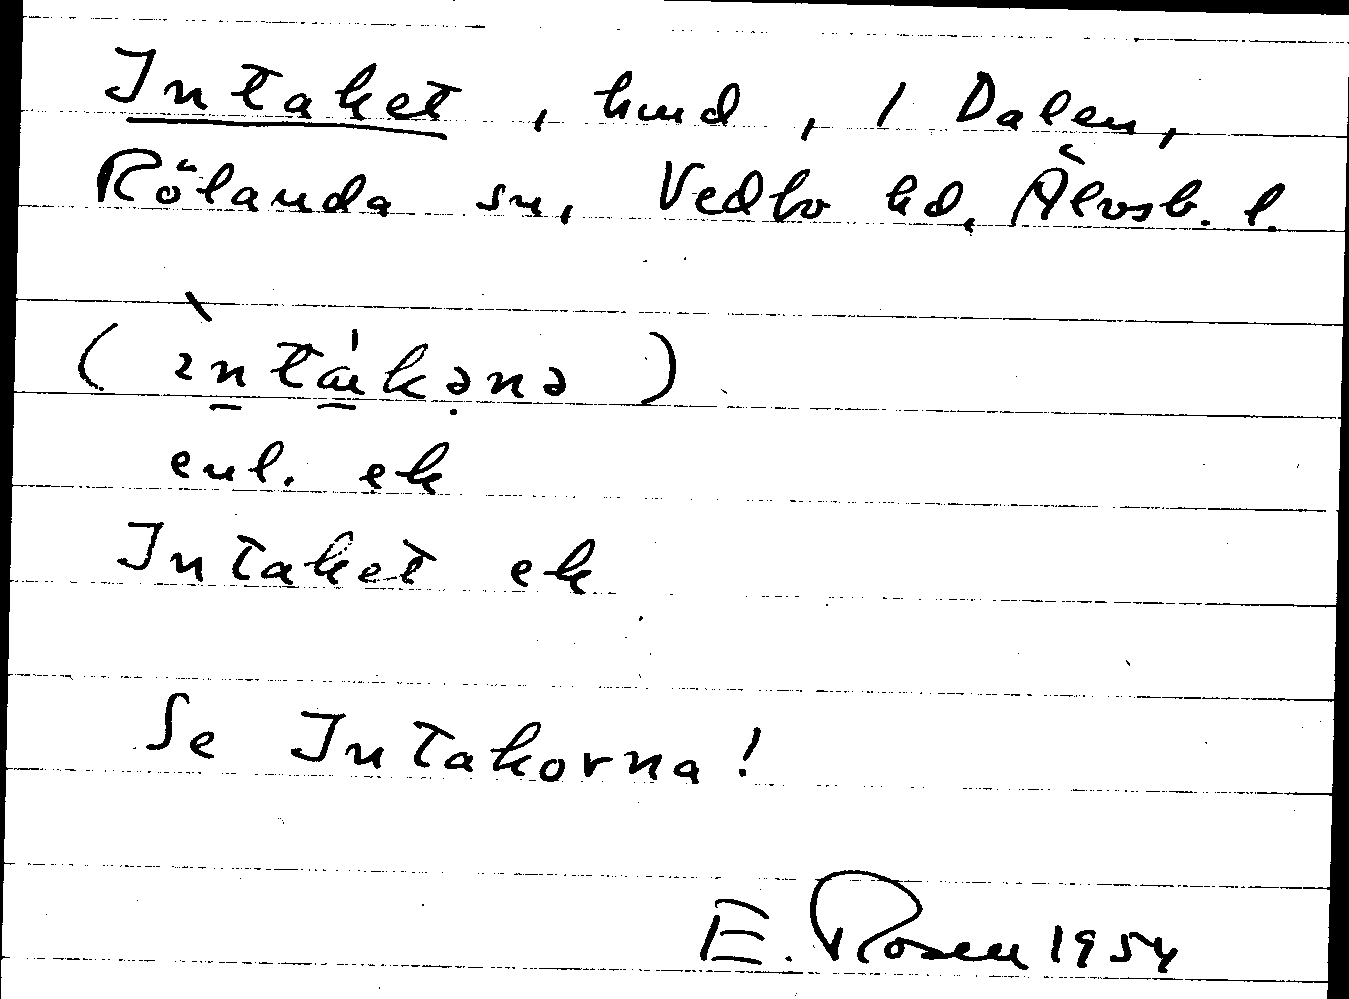 Intaket, hmd, 1 Dalen,
Rölanda sn, Vedbo hd, Älvsb. l.
(ìntákənə)
enl. ek
Intaket ek
Se Intakorna!
E. Rosen 1954